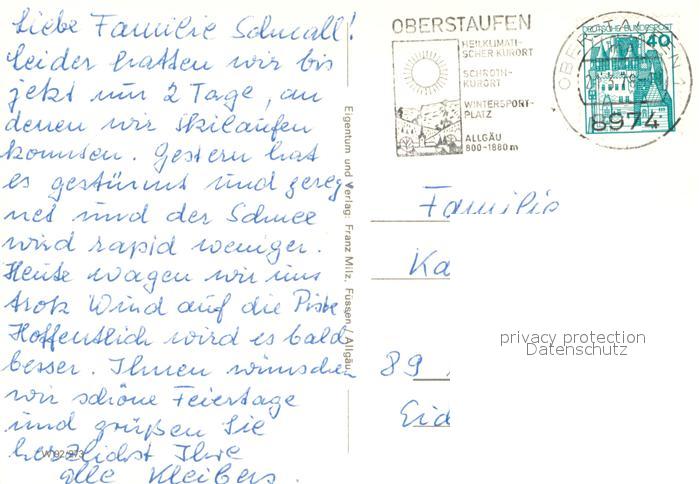 Liebe Familie Schmall!
leider hatten wir bis
jetzt nur 2 Tage, an
denen wir Skilaufen
konnten. Gestern hat
es gestürmt und gereg
net und der Schnee
wird rapid weniger.
Heute wagen wir uns
trotz Wind auf die Piste
Hoffentlich wird es bald
besser. Ihnen wünschen
wir schöne Feiertage
und grüßen Sie
herzlichst Ihre
alle Kleibers.
Eigentum und Verlag: Franz Milz, Füssen/Allgäu
OBERSTAUFEN
HEILKLIMATI-
SCHER KURORT
SCHROTH-
KURORT
WINTERSPORT-
PLATZ
ALLGÄU
800-1880 m
DEUTSCHE BUNDESPOST
40
OBERSTAUFEN 1
8974
Familie
Ka
89
Eid
privacy protection
Datenschutz